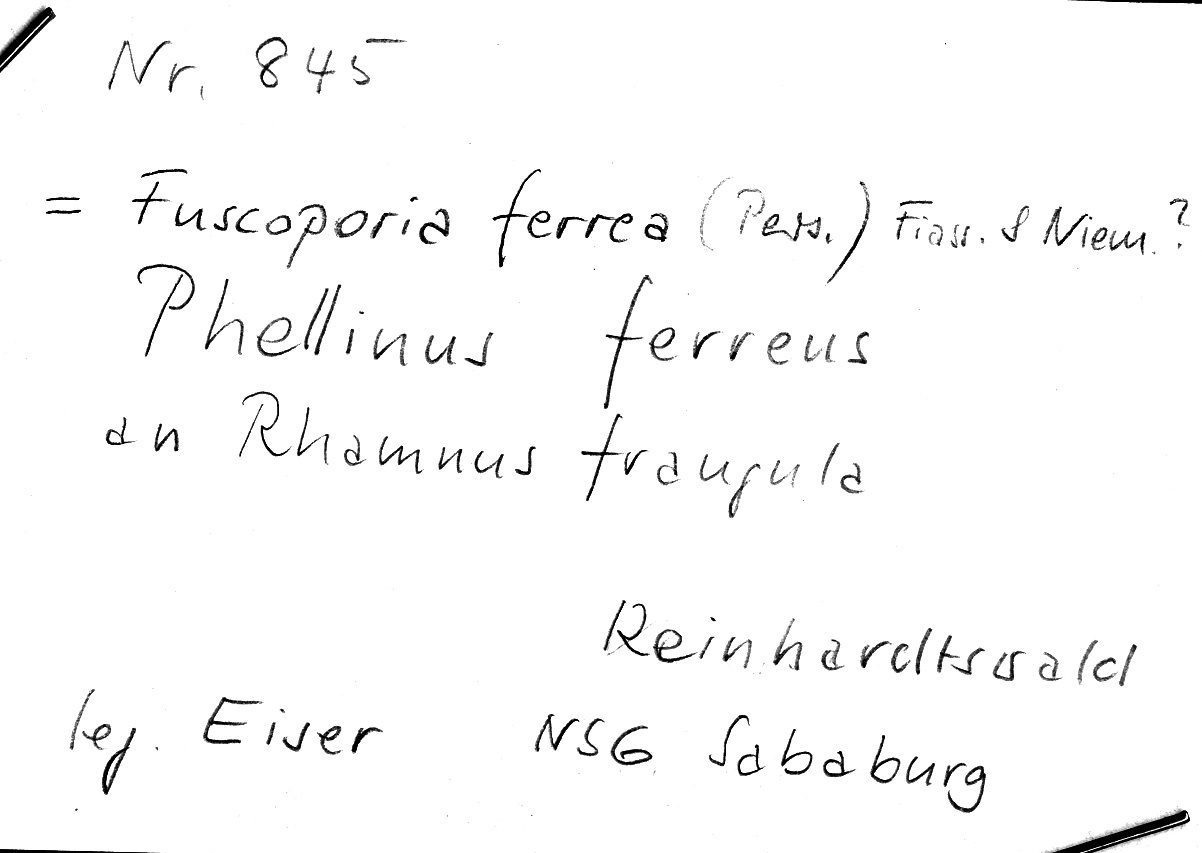 Nr. 845
= Fuscoporia ferrea (Pers.) Fiass. & Niem.?
Phellinus ferreus
an Rhamnus frangula
Reinhardtswald
leg. Eiser NSG Sababurg